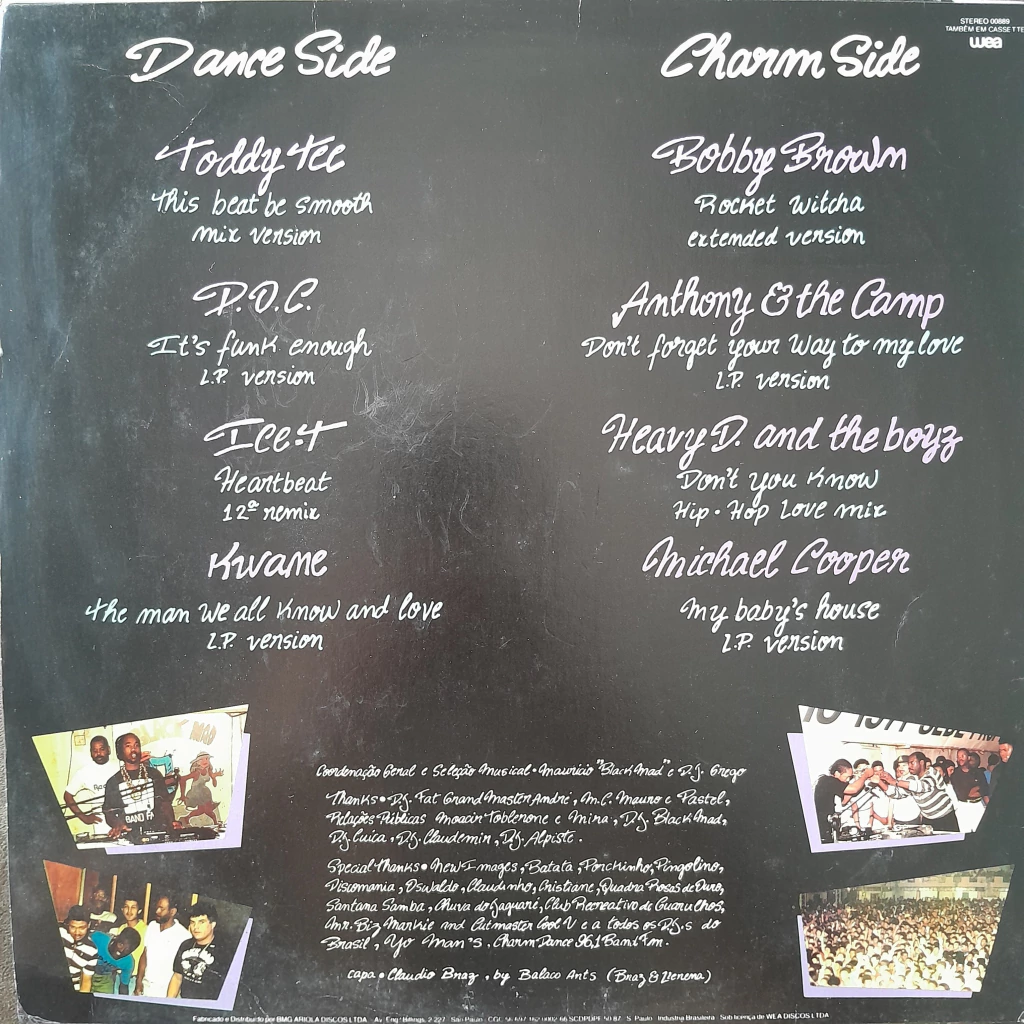 STEREO 00889
TAMBÉM EM CASSETTE
wea
Dance Side
Toddy Tee
This beat be smooth
mix version
D.O.C.
It's funk enough
L.P. version
Ice-T
Heartbeat
12ª remix
Kwame
The man we all know and love
L.P. version
Charm Side
Bobby Brown
Rocket Witcha
extended version
Anthony & the Camp
Don't forget your way to my love
L.P. version
Heavy D. and the boyz
Don't you know
Hip-Hop Love mix
Michael Cooper
My baby's house
L.P. version
BLACK MAD
BAND
Coordenação Geral e Seleção Musical • Mauricio "Black Mad" e D.J. Grego
Thanks • Dj. Fat Grand Master André, M.C. Mauro e Pastel,
Relações Públicas Moacir Toblerone e Mina, Dj. Black Mad,
Dj. Cuíca, Dj. Claudemir, Dj. Alpiste.
Special Thanks • New Images, Batata, Porckinho, Pingolino,
Discomania, Oswaldo, Claudinho, Cristiane, Quadra Rosas de Ouro,
Santana Samba, Chuva do Jaguaré, Club Recreativo de Guarulhos,
Mr. Biz Markie and Cutmaster Cool V e a todos os Dj.s do
Brasil, Yo Man's, Charm Dance 96,1 Band Fm.
capa • Claudio Braz, by Balaco Arts
Fabricado e Distribuído por BMG ARIOLA DISCOS LTDA - Av. Eng. Billings, 2.227 - São Paulo - Indústria Brasileira - Sob licença de WEA DISCOS LTDA